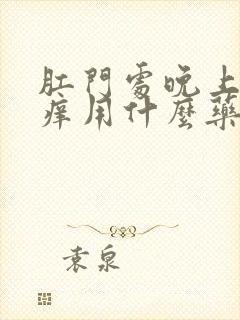 肛門處晚上
癢用什麼藥
袁泉